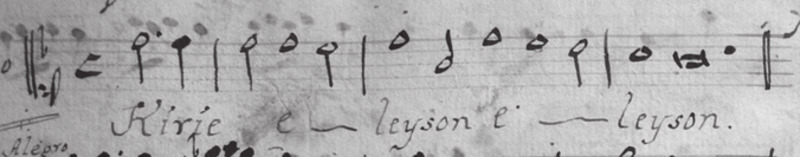 Kirie e - leyson e - leyson.
Alegro